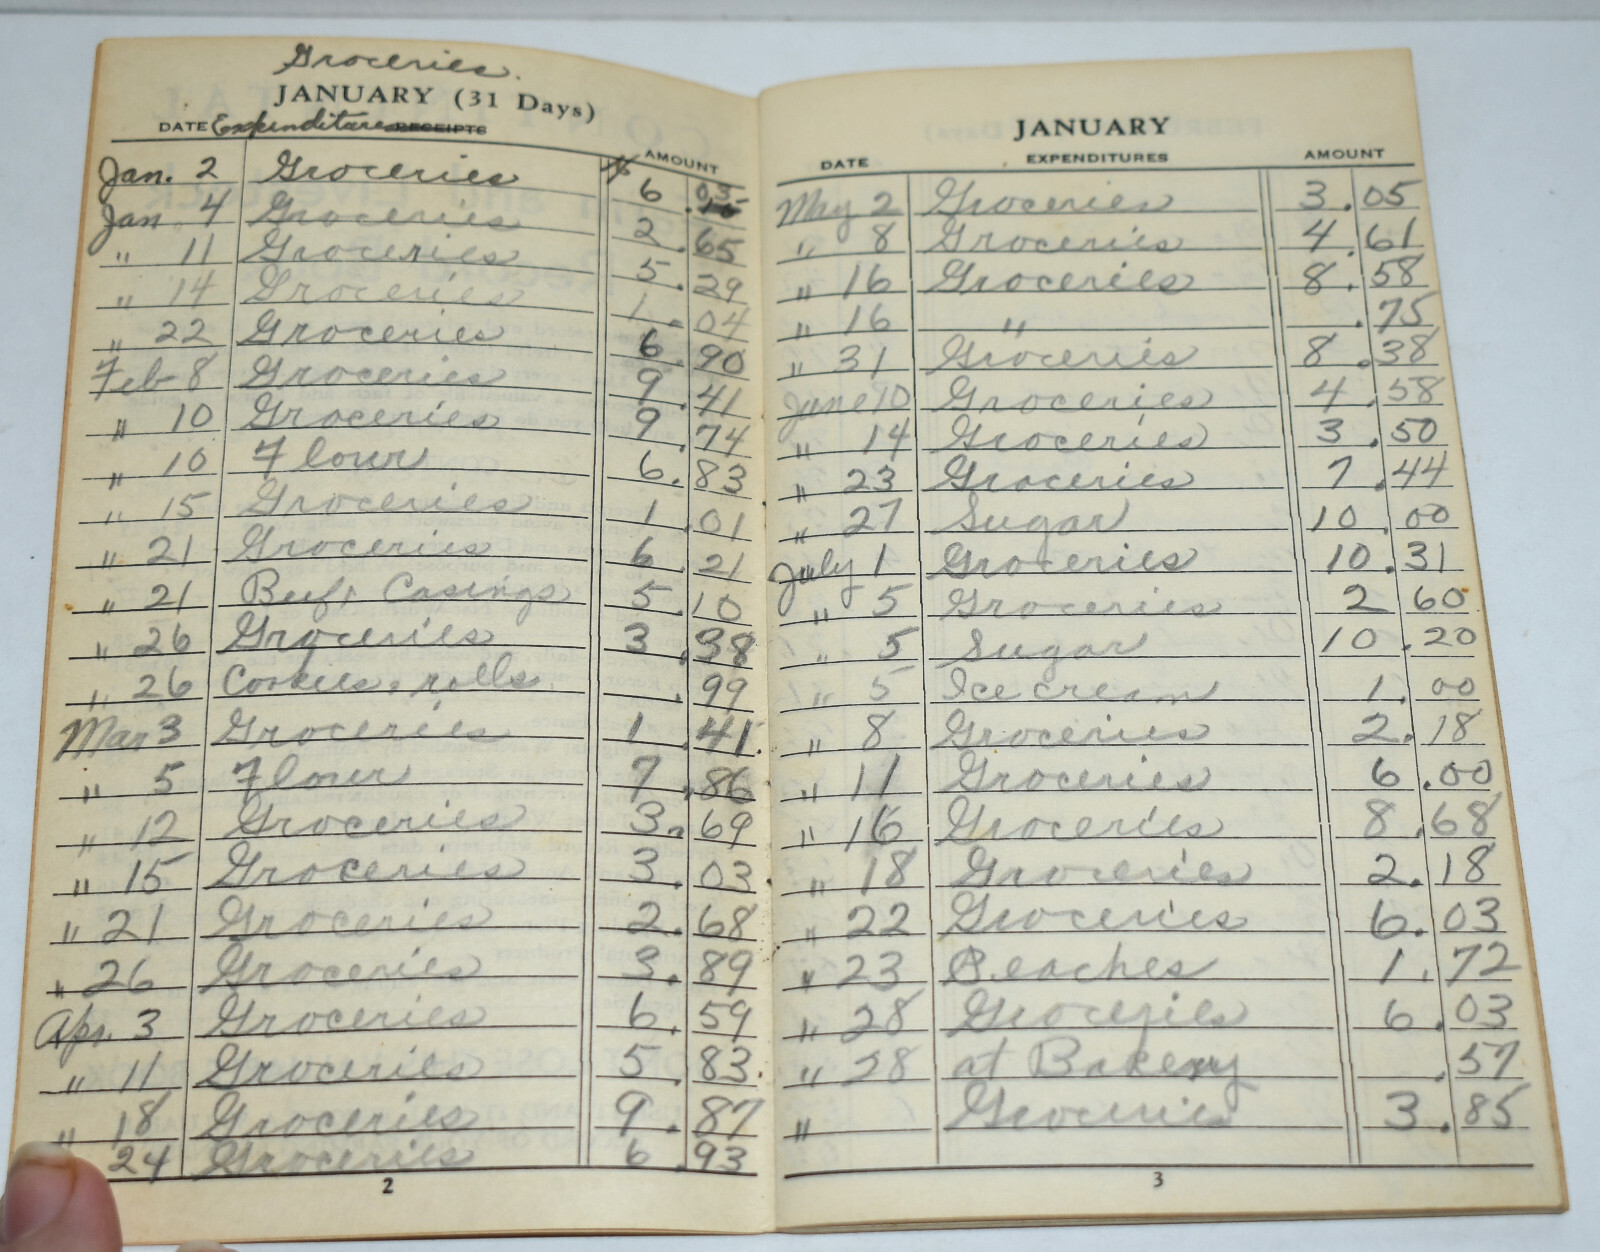 Groceries.
JANUARY (31 Days)
DATE Expenditures RECEIPTS AMOUNT
Jan. 2 Groceries $ 6 .03
Jan. 4 Groceries 2 .65
" 11 Groceries 5 .29
" 14 Groceries 1 .04
" 22 Groceries 6 .90
Feb 8 Groceries 9 .41
" 10 Groceries 9 .74
" 10 Flour 6 .83
" 15 Groceries 1 .01
" 21 Groceries 6 .21
" 21 Beef Casings 5 .10
" 26 Groceries 3 .38
" 26 Cookies, rolls .99
Mar 3 Groceries 1 .41
" 5 Flour 7 .86
" 12 Groceries 3 .69
" 15 Groceries 3 .03
" 21 Groceries 2 .68
" 26 Groceries 3 .89
Apr. 3 Groceries 6 .59
" 11 Groceries 5 .83
" 18 Groceries 9 .87
24 Groceries 6 .93
2
JANUARY
DATE EXPENDITURES AMOUNT
May 2 Groceries 3 .05
" 8 Groceries 4 .61
" 16 Groceries 8 .58
" 16 " .75
" 31 Groceries 8 .38
June 10 Groceries 4 .58
" 14 Groceries 3 .50
" 23 Groceries 7 .44
" 27 Sugar 10 .00
July 1 Groceries 10 .31
" 5 Groceries 2 60
" 5 Sugar 10 .20
" 5 Ice cream 1 .00
" 8 Groceries 2 .18
" 11 Groceries 6 .00
" 16 Groceries 8 .68
" 18 Groceries 2 .18
" 22 Groceries 6 .03
" 23 Peaches 1 .72
" 28 Groceries 6 .03
" 28 at Bakery .57
" Groceries 3 .85
3